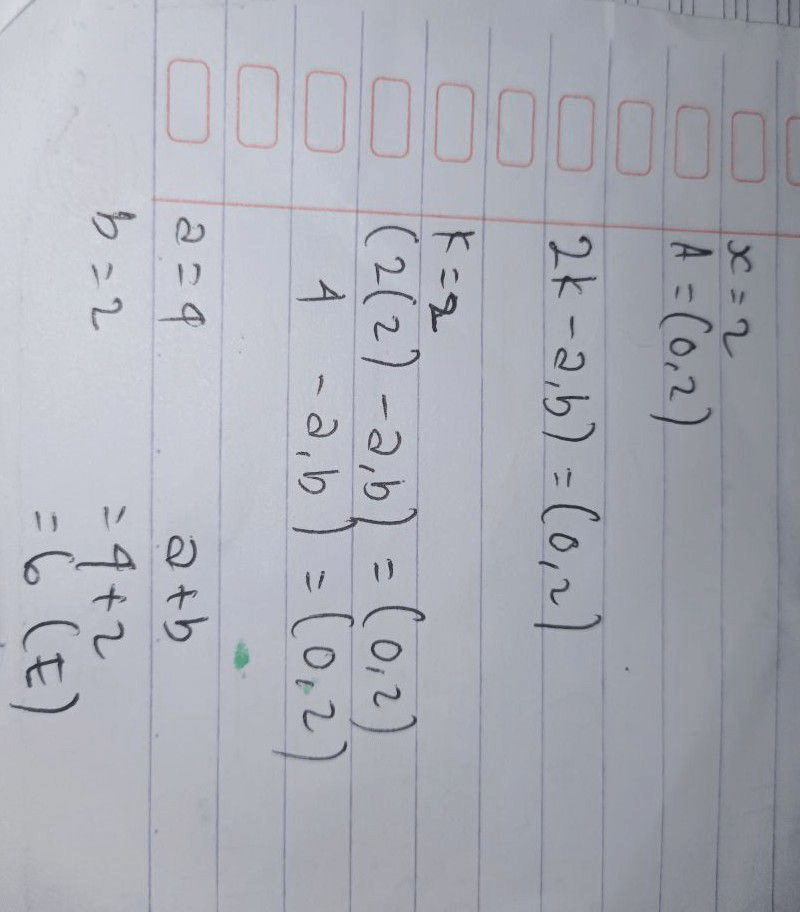 x = 2
A = (0,2)
2k - a, b) = (0,2)
k = 2
(2(2) - a, b) = (0,2)
4 - a, b) = (0,2)
a = 4 a + b
b = 2 = 4 + 2
= 6 (E)